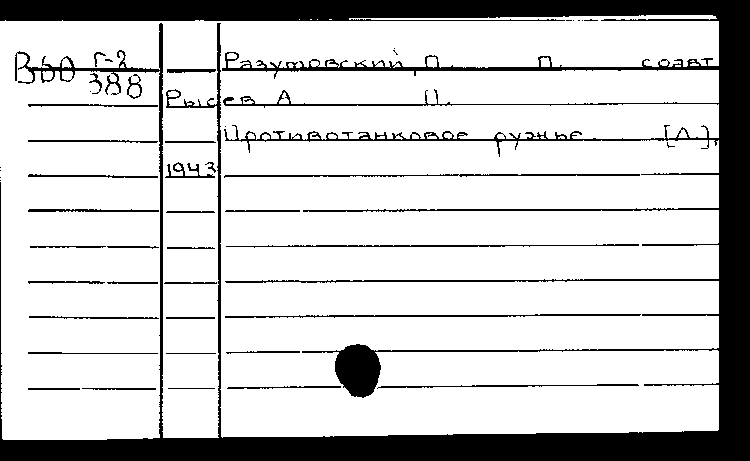 В60 Г-2 Разумовский, П. П. соавт
388
Рысев, А. П.
Противотанковое ружье. [Л.],
1943